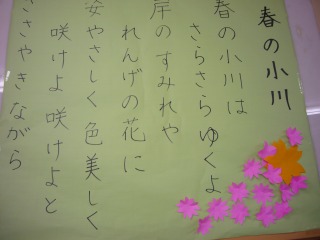 春の小川
春の小川は
さらさらゆくよ
岸のすみれや
れんげの花に
姿やさしく色美しく
咲けよ咲けよと
ささやきながら